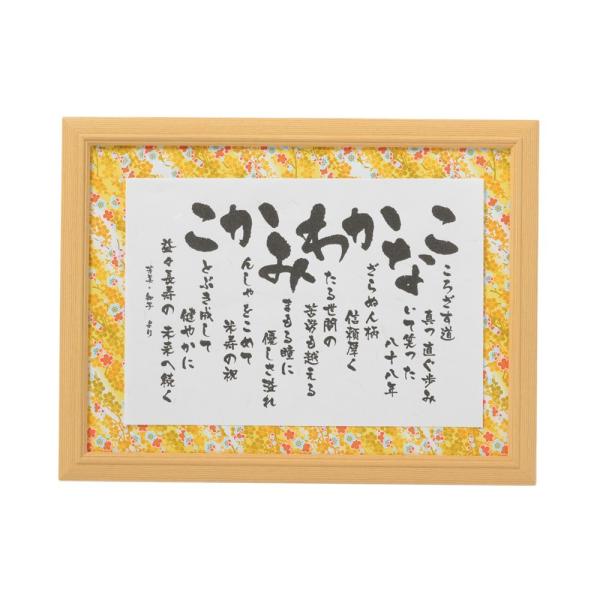 こころざす道
真っ直ぐ歩み
ないて笑った
八十八年
かざらぬ人柄
信頼厚く
わたる世間の
苦労も越える
みまもる瞳に
優しさ溢れ
かんしゃをこめて
米寿の祝
ことぶき成して
健やかに
益々長寿の 未来へ続く
・和子 より